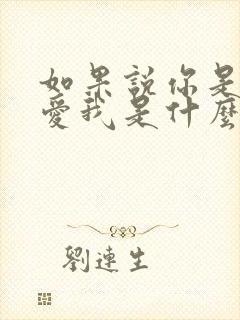 如果說你是
愛我是什麼
劉連生